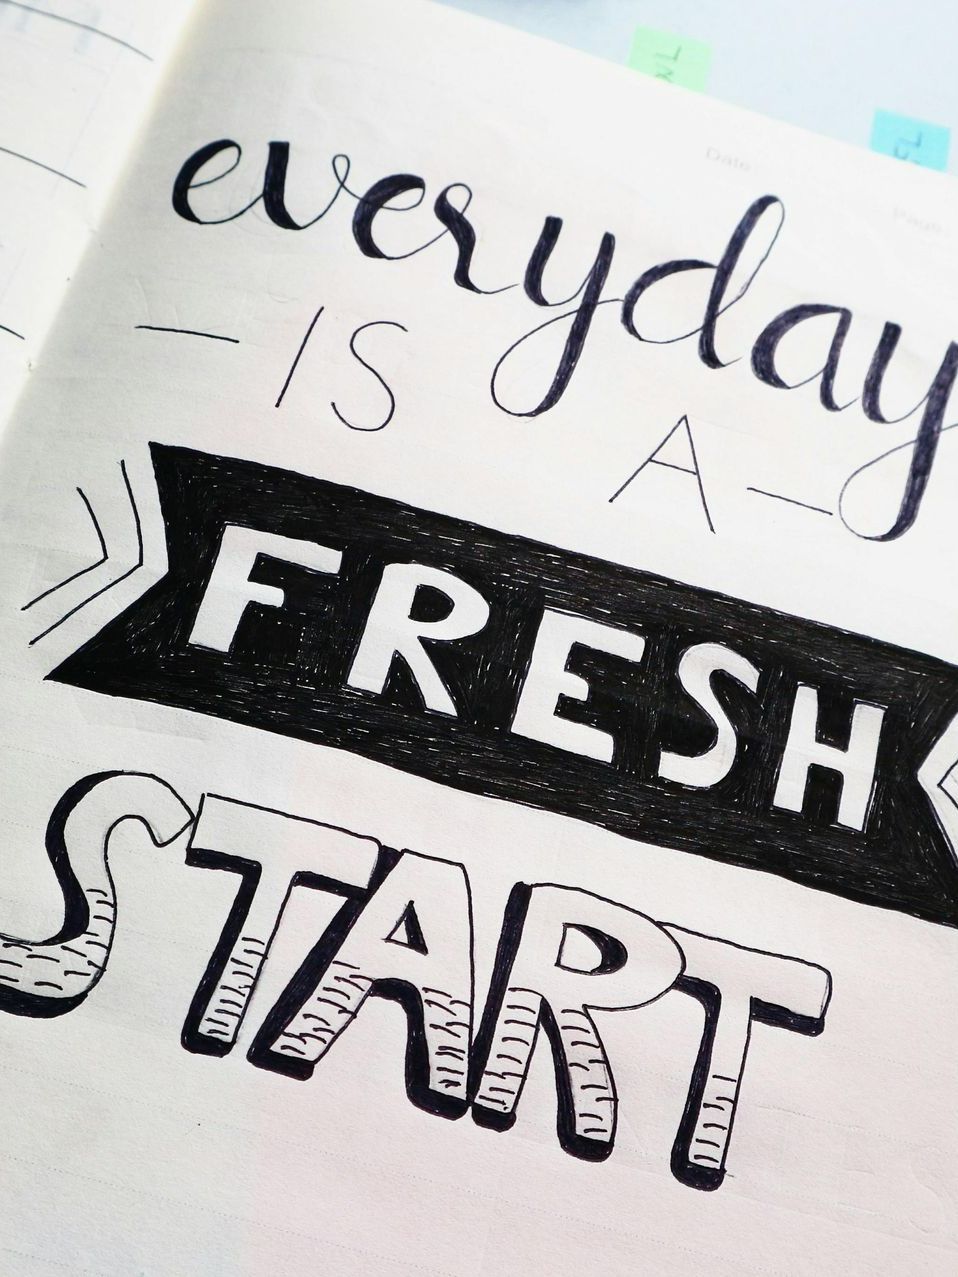 Date
everyday
- IS A -
FRESH
START